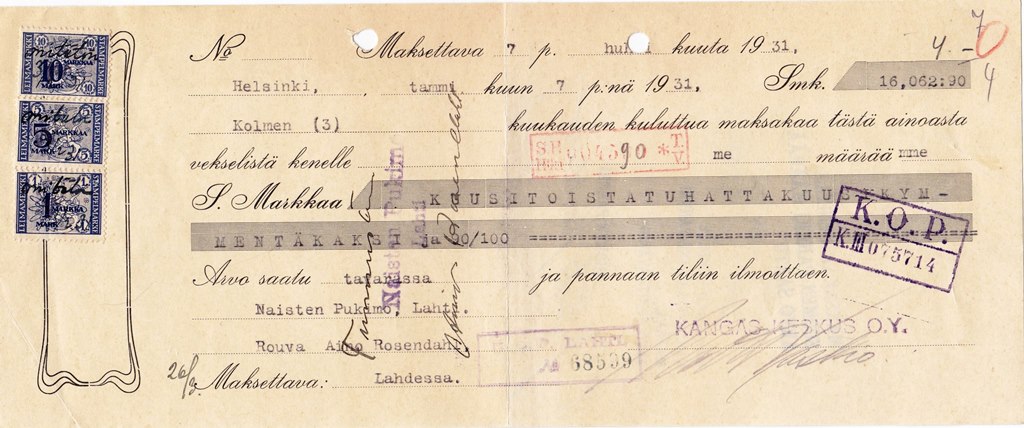 No Maksettava 7 p. huhti kuuta 1931.
Helsinki, tammi kuun 7 p:nä 1931. Smk. 16,062:90
Kolmen (3) kuukauden kuluttua maksakaa tästä ainoasta
vekselistä kenelle me määrää mme
S. Markkaa KUUSITOISTATUHATTAKUUSIKYM-
MENTÄKAKSI ja 90/100
Arvo saatu tavarassa ja pannaan tiliin ilmoittaen.
Naisten Pukimo, Lahti.
Rouva Aino Rosendahl
Maksettava: Lahdessa.
LEIMAMERKKI 10 MARKKAA MARK STÄMPELMÄRKE
LEIMAMERKKI 5 MARKKAA MARK STÄMPELMÄRKE
LEIMAMERKKI 1 MARKKA MARK STÄMPELMÄRKE
mitätön
mitätön
mitätön
4
7
4
26/3
Naisten Pukimo
Lahti
Aino Rosendahl
K.O.P.
K.III 075714
KANGAS KESKUS O.Y.
LAHTI
№ 68599